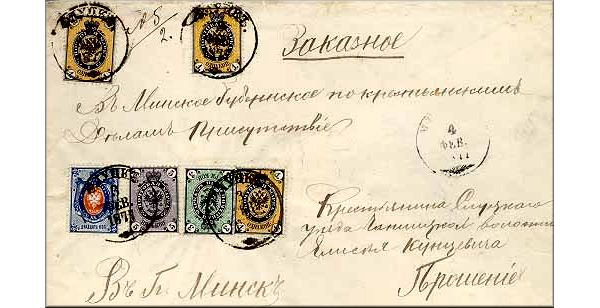 СЛУЦКЪ.
№ 5
2.
Заказное
Въ Минское Губернское по крестьянскимъ
Дѣламъ Присутствіе
4
ФЕВ.
Крестьянина Слуцкаго
уѣзда волости
Кунцевича
Прошеніе
Въ Г. Минскъ